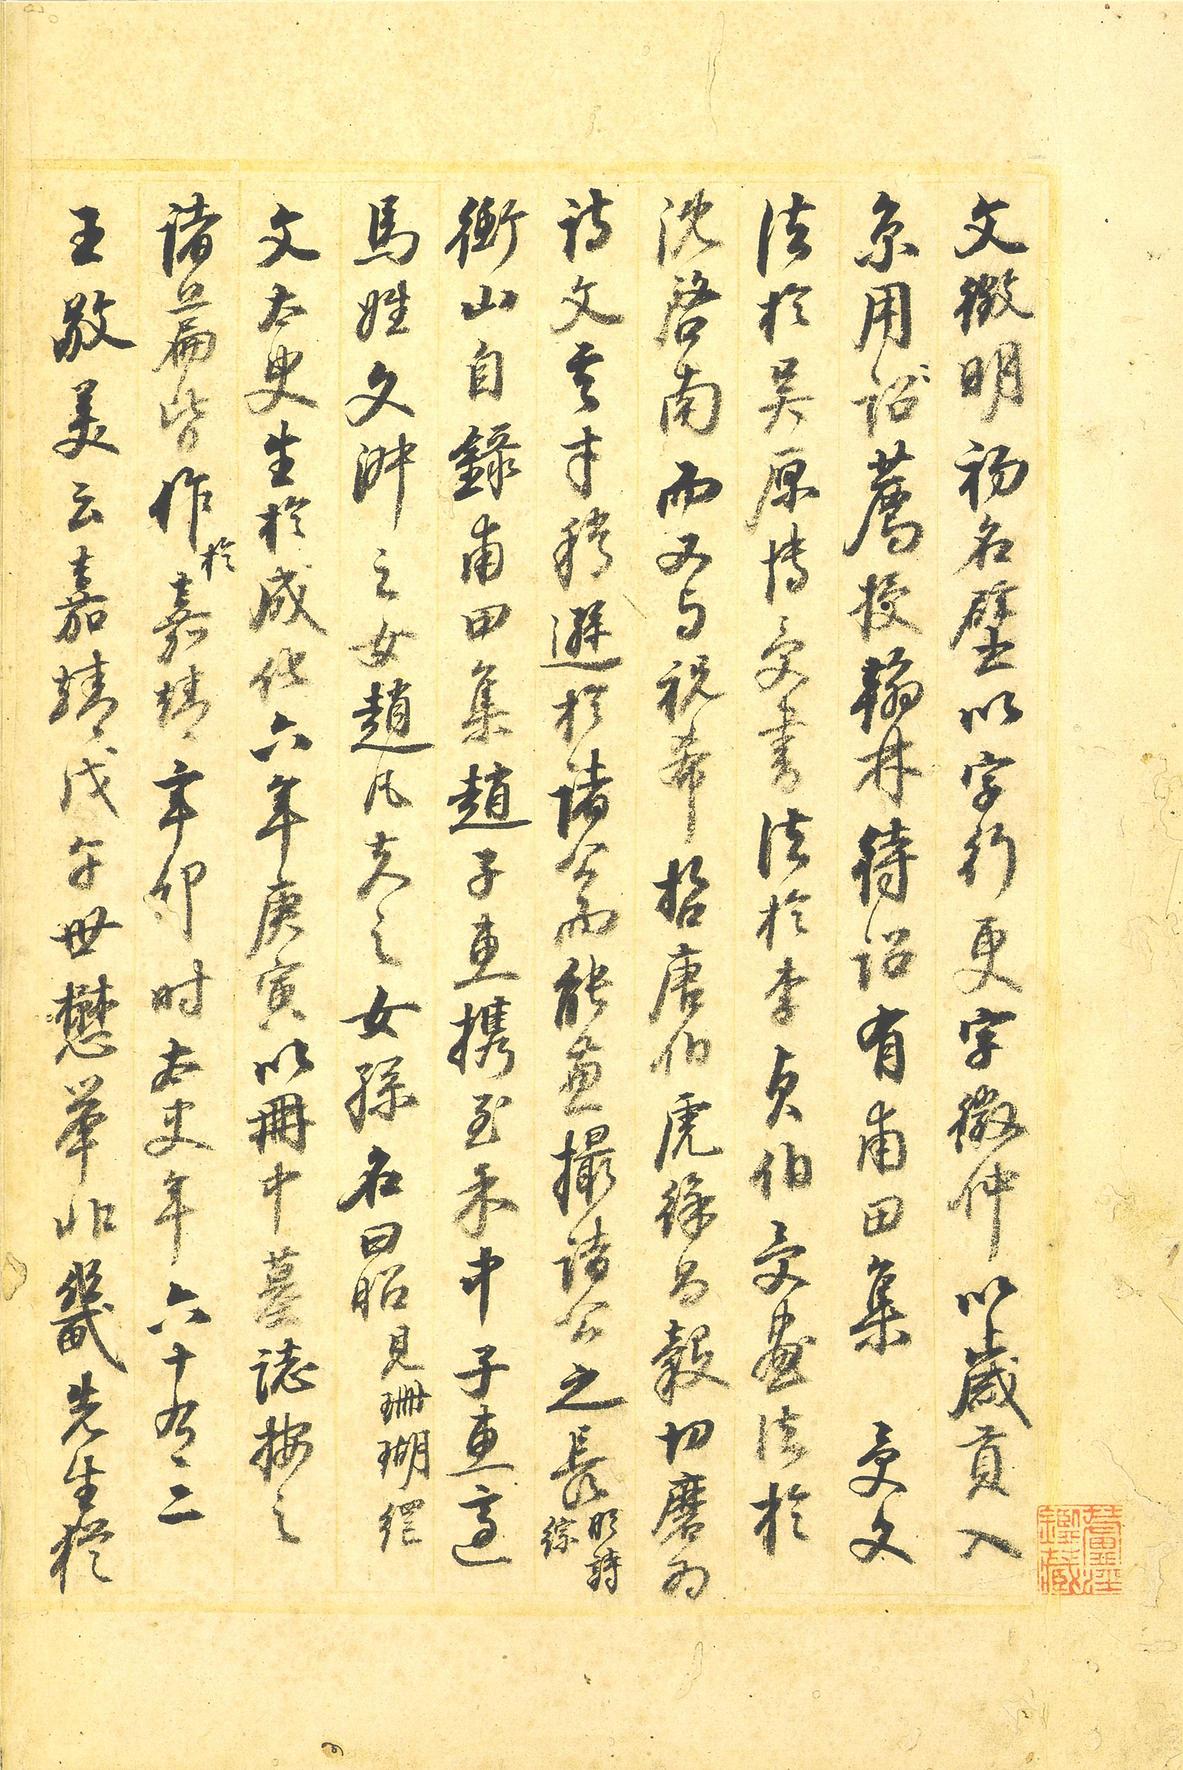 文徵明初名壁以字行更字徵仲以歲貢入
京用詔薦授翰林待詔有甫田集 受文
法於吳原博受書法於李貞伯受画法於
沈啓南而又与祝希哲唐伯虎徐昌穀切磨为
诗文其才稍遜於諸公而能兼撮諸公之長明詩綜
衡山自錄甫田集趙子惠携至禾中子惠適
馬姓文淋之女趙凡夫之女孫名曰昭見珊瑚網
文太史生於成化六年庚寅以冊中墓誌按之
諸篇皆作於嘉靖辛卯时太史年六十有二
王敬美云嘉靖戊午世懋舉北畿先生猶